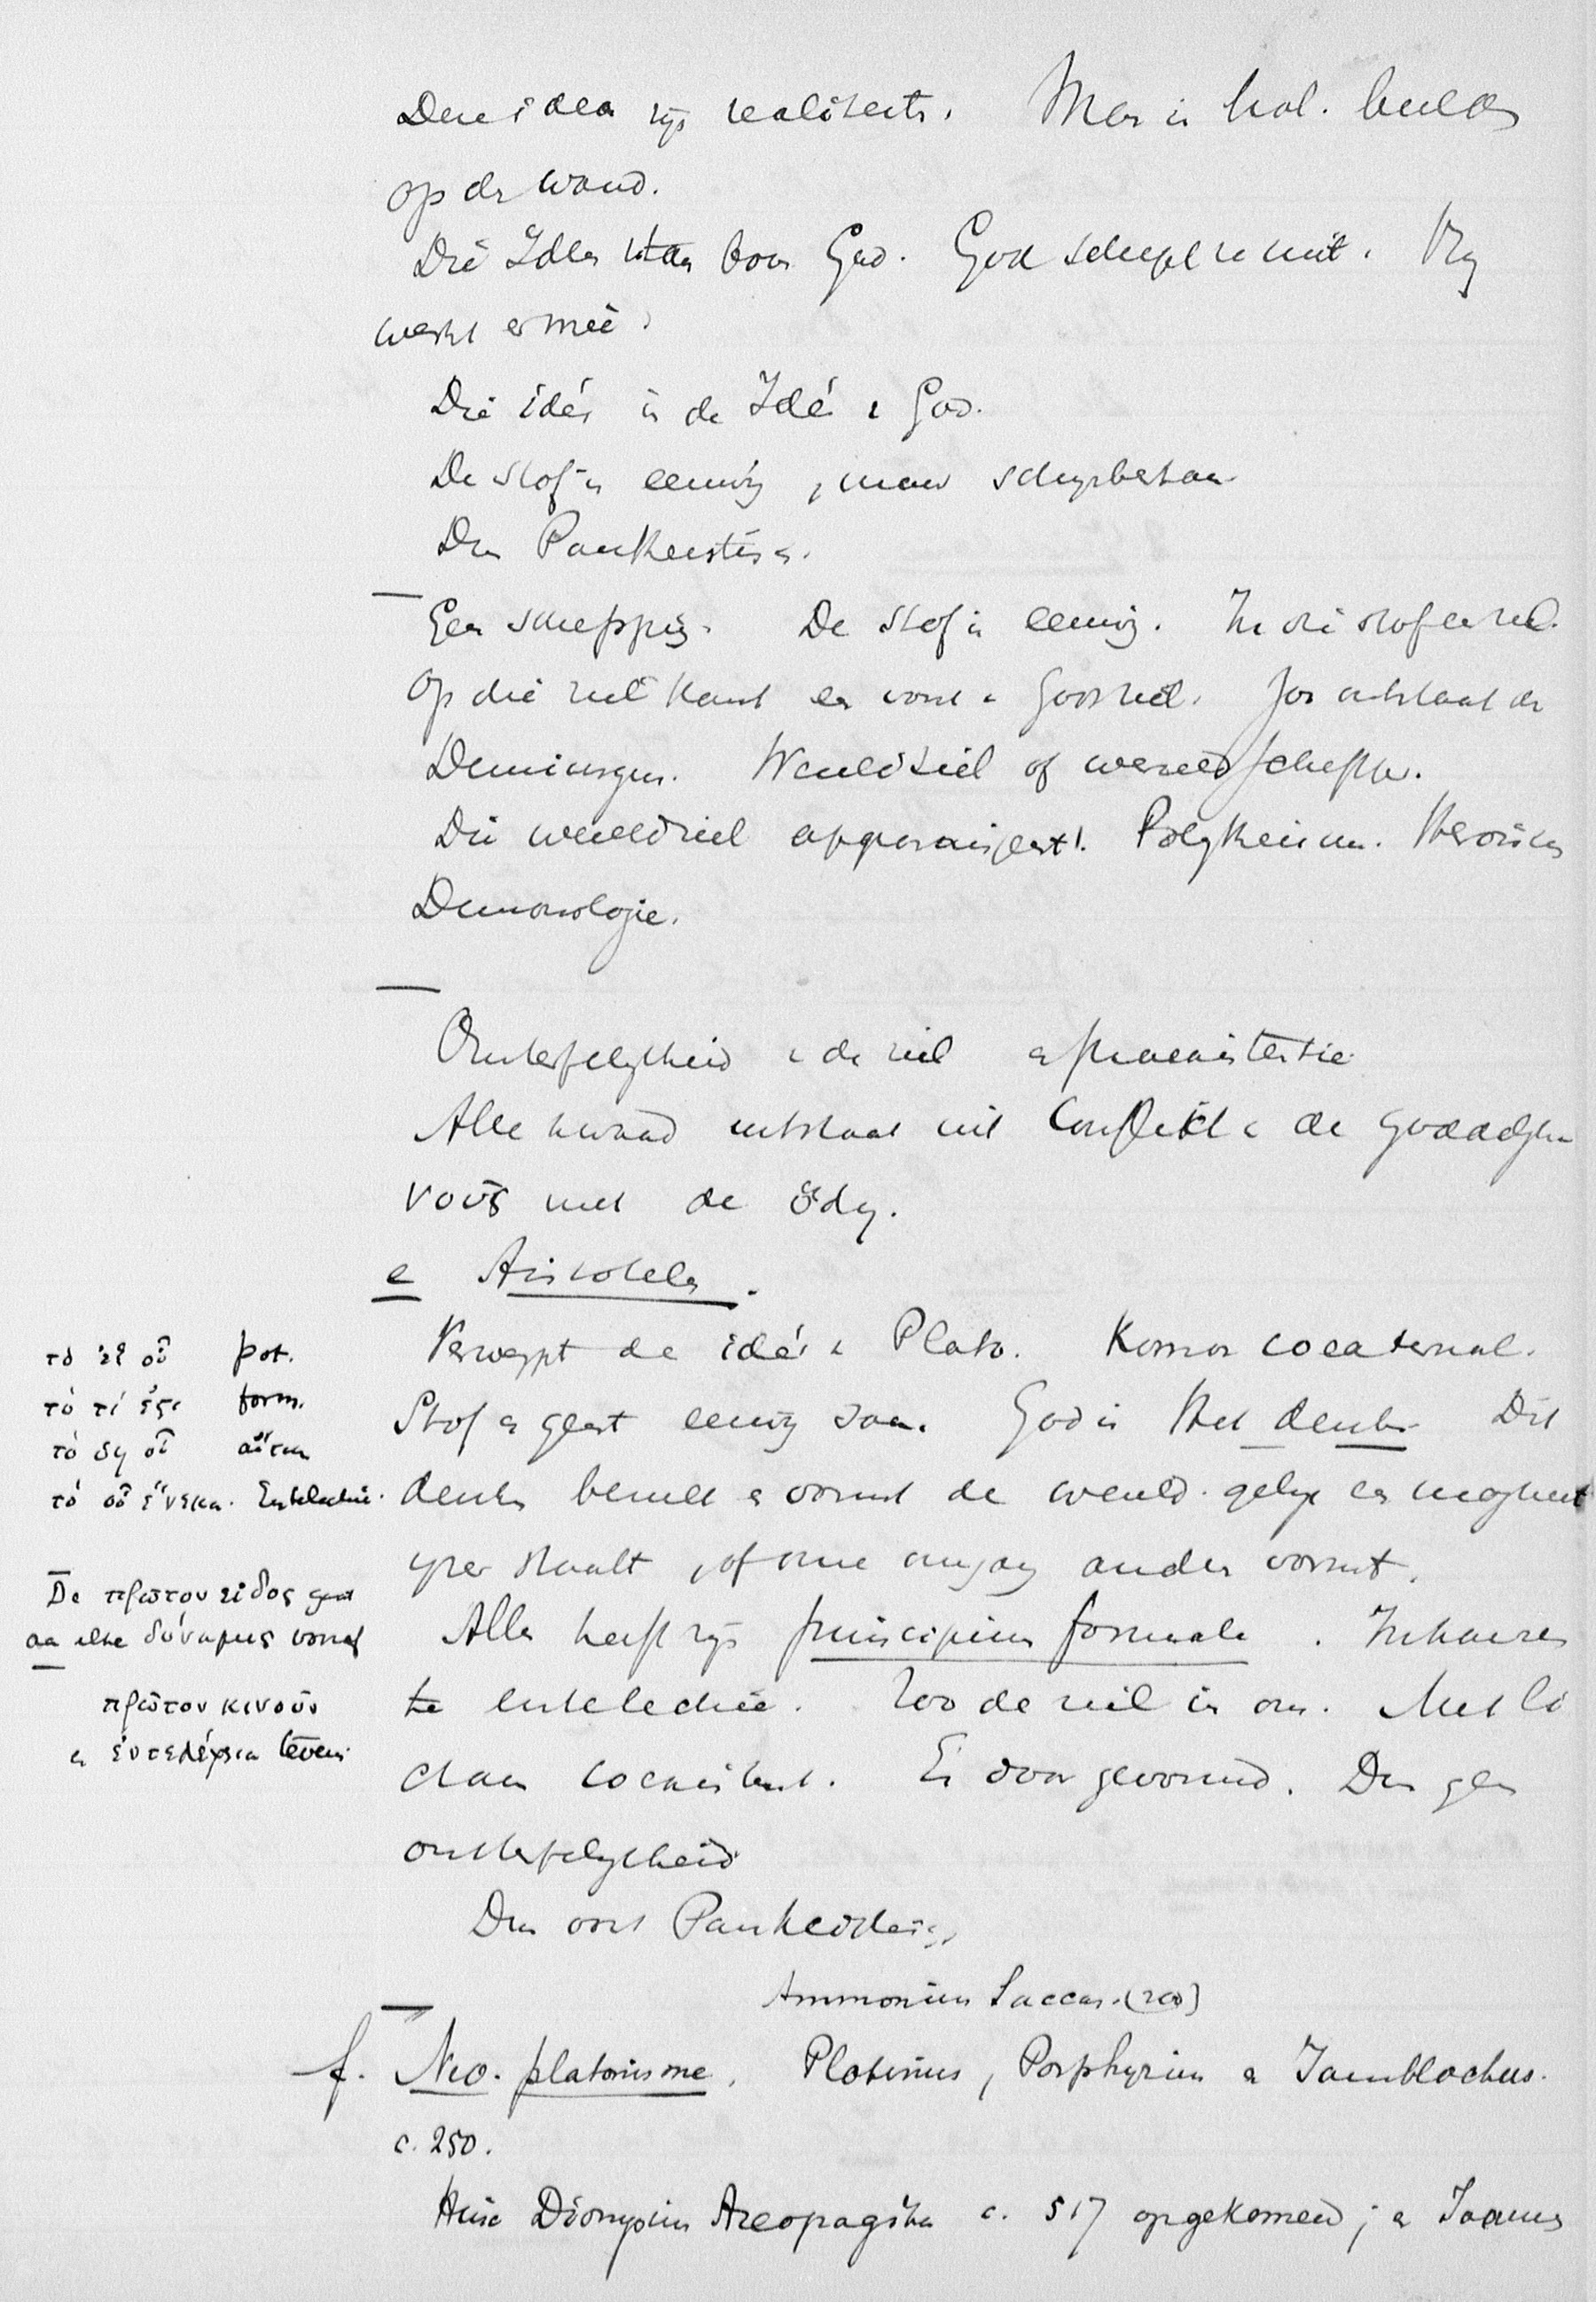 Deze idea zijn realiteit. Men in hol. beelden
op de wand.
Die Ideen staan boven God. God schept ze niet. Hij
werkt er meê.
Die ideés in de Ideé God.
De stof is eeuwig, maar schijnbestaan
Dus Pantheistisch.
Geen schepping. De stof is eeuwig. In die stof een ziel.
Op die ziel komt en vormt Gods ziel. Zoo ontstaat de
Demiurgus. Wereldziel of wereldschepper.
Die wereldziel Polytheisme. Heroïsch
Demonologie.
Onsterfelijkheid v. de ziel en praeexistentie
Alle kwaad ontstaat uit Conflikt v. de goddelijken
νοῦς met de ὕλη.
e Aristoteles.
Verwerpt de ideé v Plato. Kosmos coeaternal.
Stof en geest eeuwig saam. God is Het denken Dit
denken bezielt en vormt de wereld. gelijk een magneet
ijzer staalt, of ons anders vormt.
Alles heeft zijn principium formale. Inhaeren
te entelechie. Zoo de ziel in ons. Met li
chaam coexistent. Er door gevormd. Dus geen
onsterfelijkheid
Dus ook Pantheistisch
τὸ ἐξ οὗ pot.
τὸ τί ἐστι form.
τὸ δι' οὗ
τὸ οὗ ἕνεκα. Entelechie.
De πρῶτον εἶδος geeft
aan elke δύναμις vorm
πρῶτον κινοῦν
en ἐντελέχεια tevens
Ammonius Saccas. (200)
f. Neo-platonisme. Plotinus, Porphyrius en Jamblochus.
c. 250.
Hieruit Dionysius Areopagita c. 517 opgekomen; en Joannes